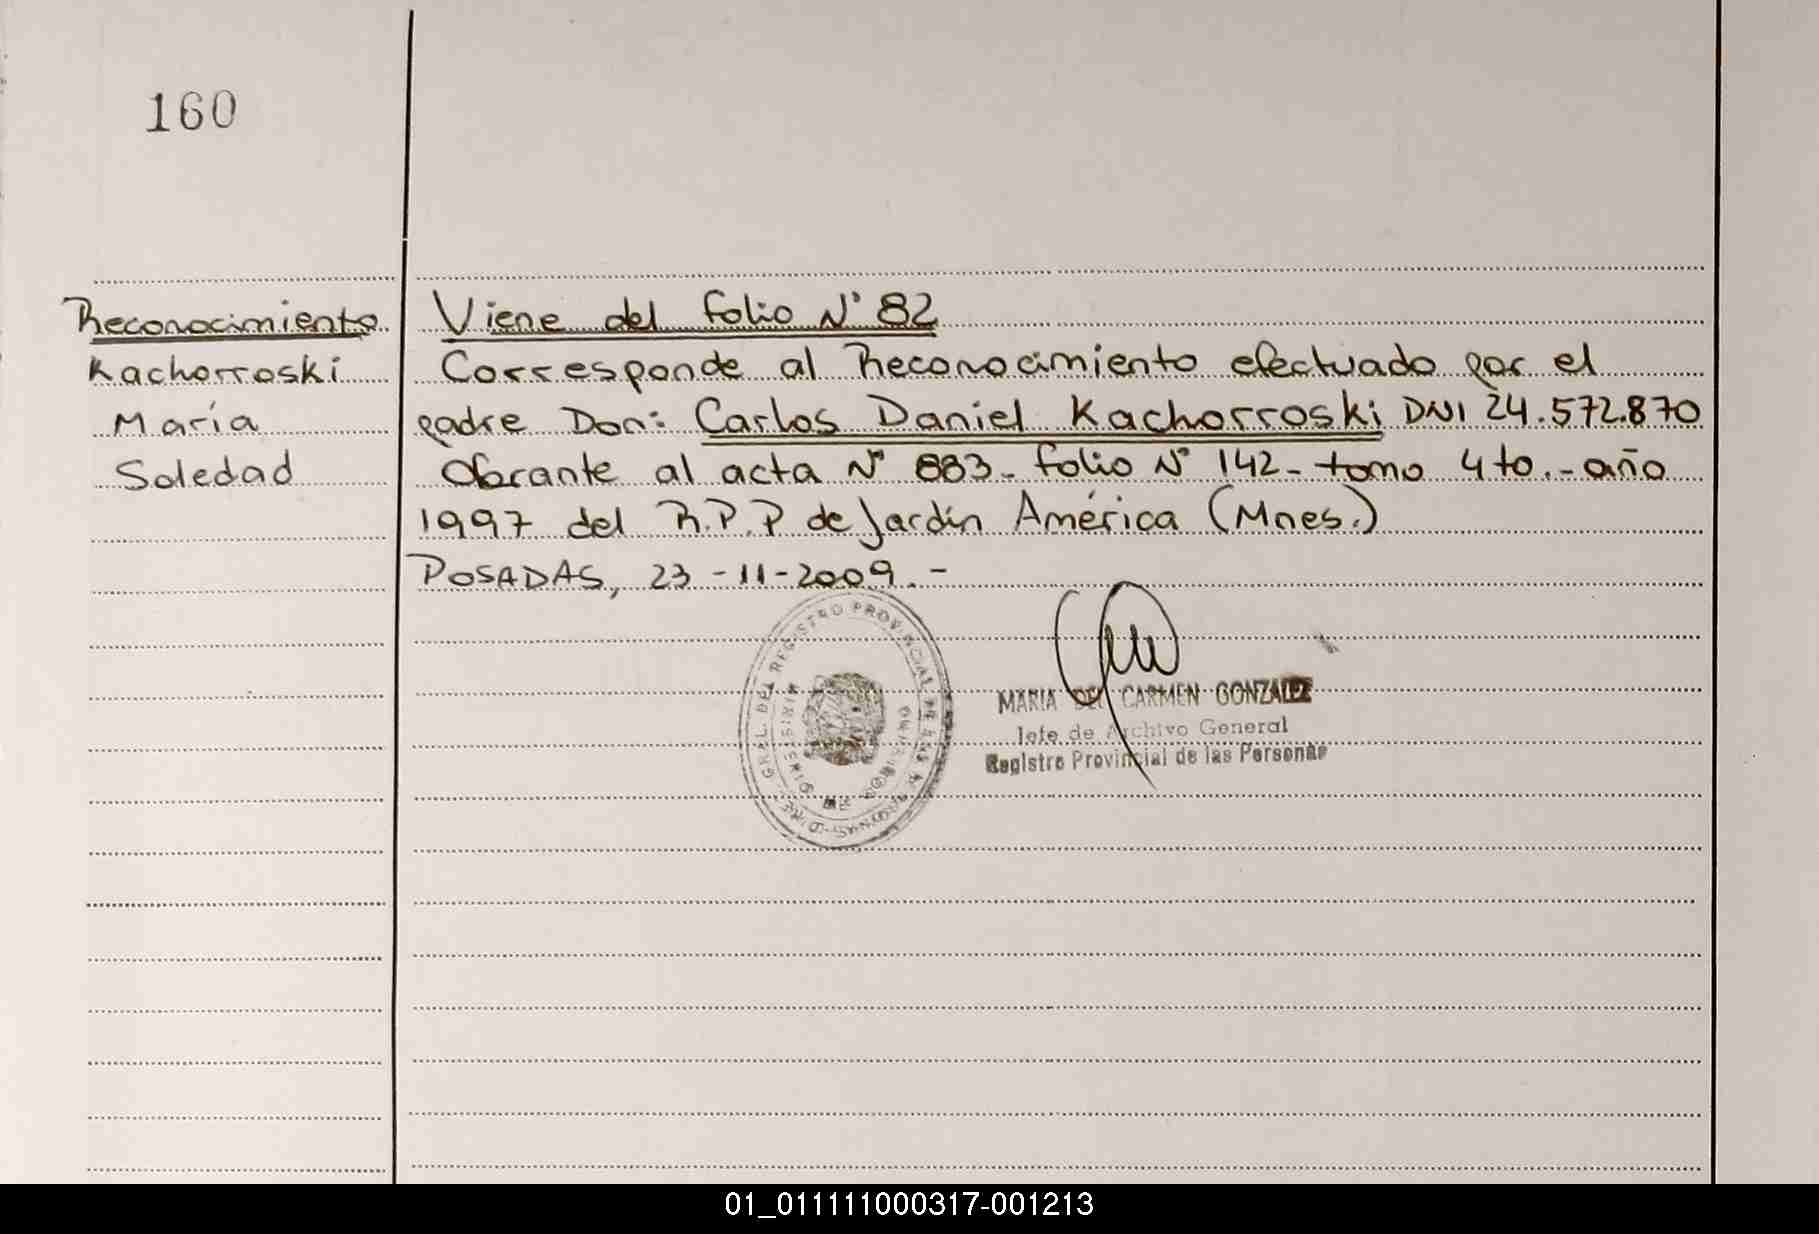 160
Reconocimiento
Kachorroski
María
Soledad
Viene del folio N° 82
Corresponde al Reconocimiento efectuado por el
padre Don: Carlos Daniel Kachorroski DNI 24.572.870
Obrante al acta N° 883- folio N° 142- tomo 4to.- año
1997 del R.P.P de Jardín América (Mnes.)
POSADAS, 23-11-2009.-
GRAL. DEL REGISTRO PROVINCIAL DE
MARIA DEL CARMEN GONZALEZ
Jefe de Archivo General
Registro Provincial de las Personas
01_011111000317-001213